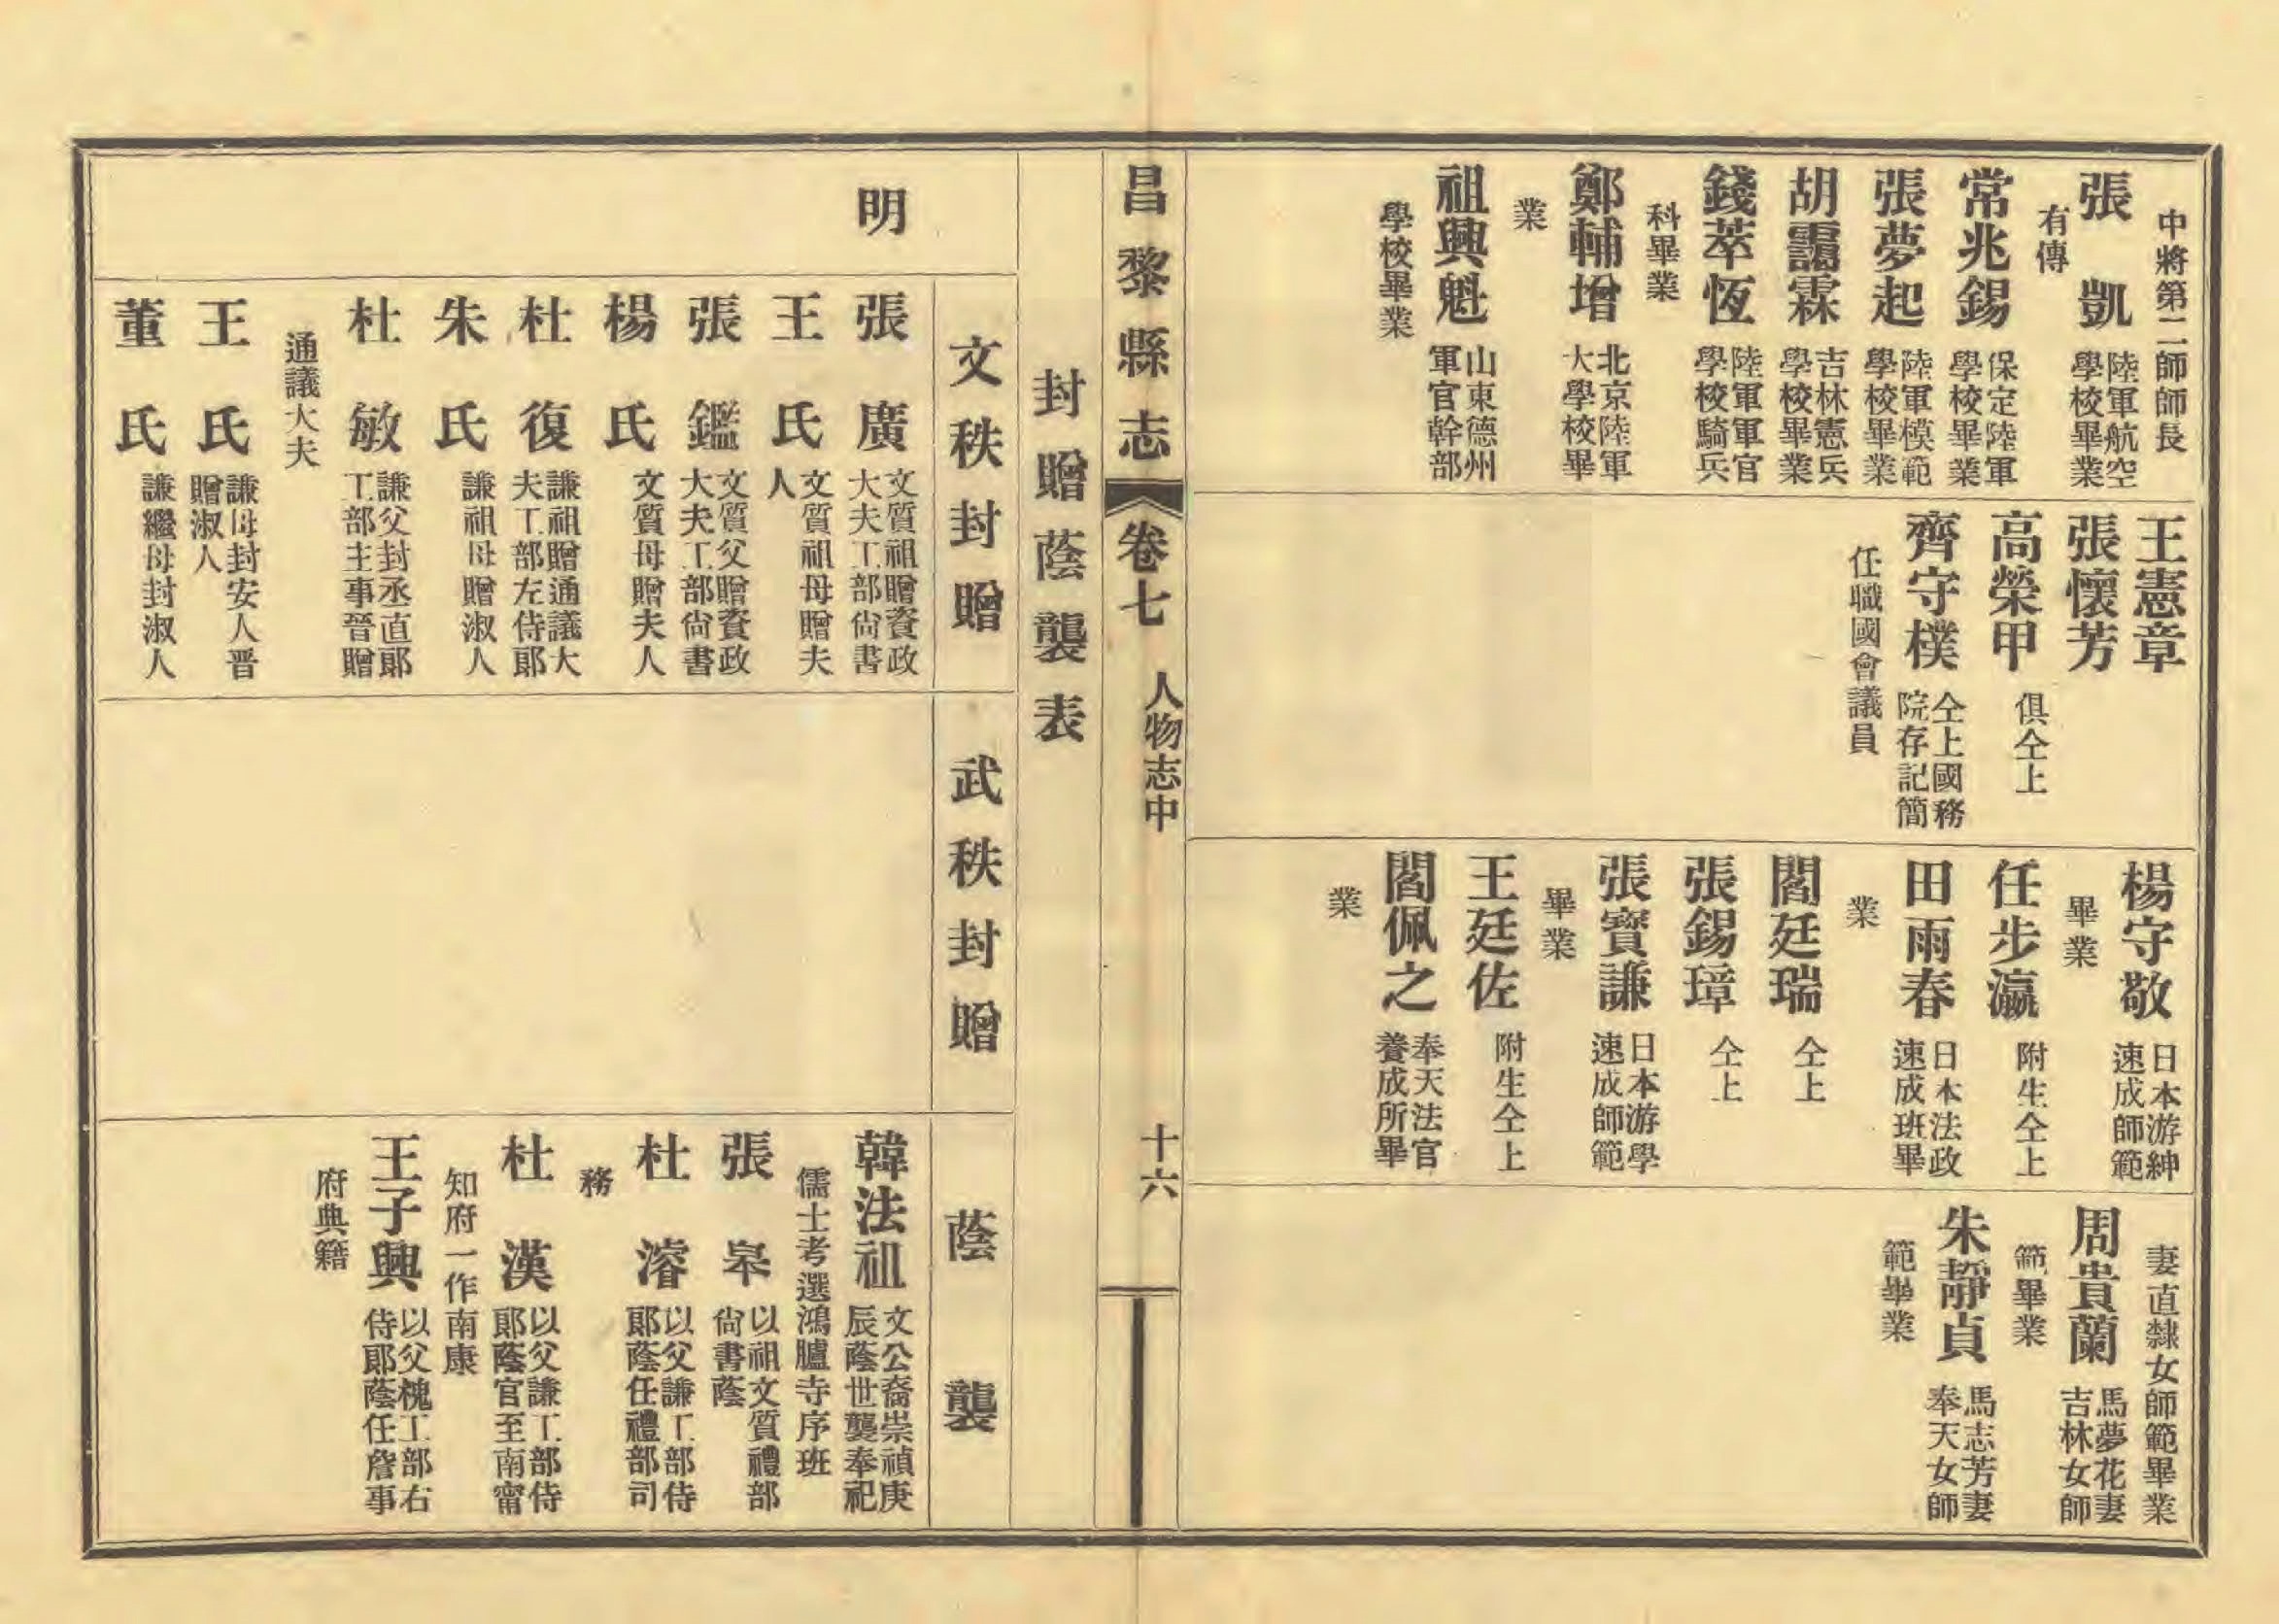 中將第二師師長
張凱 陸軍航空學校畢業
有傳
常兆錫 保定陸軍學校畢業
張夢起 陸軍模範學校畢業
胡靄霖 吉林憲兵學校畢業
錢萃恆 陸軍軍官學校騎兵
科畢業
鄭輔增 北京陸軍大學校畢
業
祖興魁 山東德州軍官幹部
學校畢業
王憲章
張懷芳
高榮甲 俱仝上
齊守樸 仝上國務院存記簡
任職國會議員
楊守敬 日本游紳速成師範
畢業
任步瀛 附生仝上
田雨春 日本法政速成班畢
業
閻廷瑞 仝上
張錫璋 仝上
張寶謙 日本游學速成師範
畢業
王廷佐 附生仝上
閻佩之 奉天法官養成所畢
業
妻直隸女師範畢業
周貴蘭 馬夢花妻吉林女師
範畢業
朱靜貞 馬志芳妻奉天女師
範畢業
昌黎縣志 卷七 人物志中 十六
封贈蔭襲表
文秩封贈
武秩封贈
蔭襲
明
張廣 文質祖贈資政大夫工部尙書
王氏 文質祖母贈夫人
張鑑 文質父贈資政大夫工部尙書
楊氏 文質母贈夫人
杜復 謙祖贈通議大夫工部左侍郞
朱氏 謙祖母贈淑人
杜敏 謙父封丞直郞工部主事晉贈
通議大夫
王氏 謙母封安人晋贈淑人
董氏 謙繼母封淑人
韓法祖 文公裔崇禎庚辰蔭世襲奉祀
儒士考選鴻臚寺序班
張皋 以祖文質禮部尙書蔭
杜濬 以父謙工部侍郞蔭任禮部司
務
杜漢 以父謙工部侍郞蔭官至南甯
知府一作南康
王子興 以父槐工部右侍郞蔭任詹事
府典籍